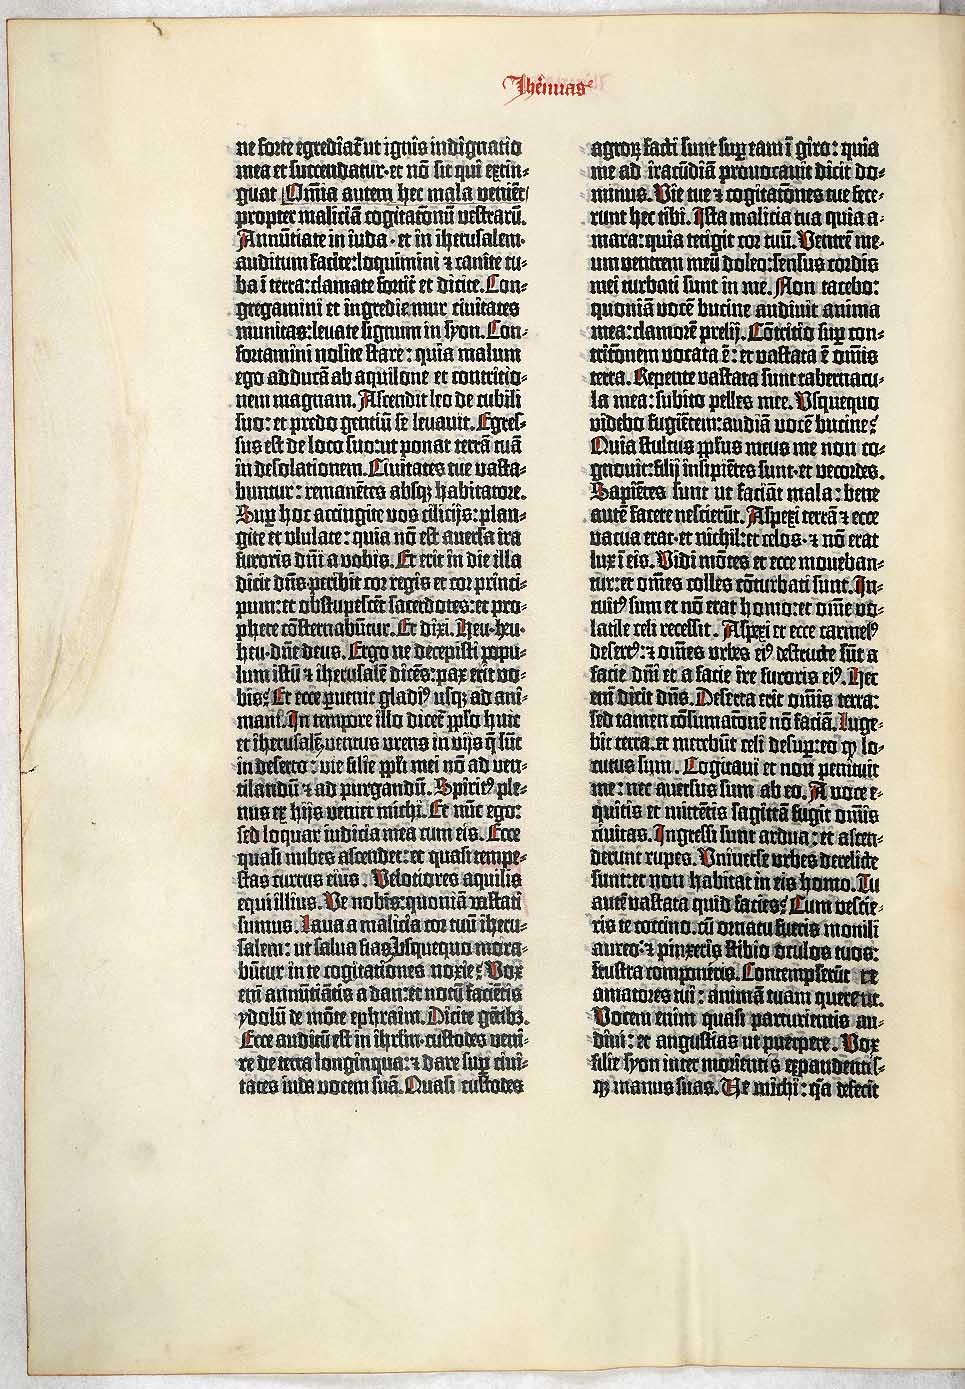 Jheremias
ne forte egrediat̃ ut ignis indignatio
mea et succendatur·et nō sit qui extin-
guat Om̄ia autem hec mala veniēt
propter maliciā cogitatōnū vestrarū.
Annūtiate in iuda·et in iherusalem·
auditum facite:loquimini ⁊ canite tu-
ba ī terra:clamate fortit̃ et dicite.Con-
gregamini et ingredie mur civitates
munitas:levate signum in syon.Con-
fortamini nolite stare:quia malum
ego adducā ab aquilone et contritio-
nem magnam.Ascendit leo de cubili
suo:et predo gentiū se levavit.Egres-
sus est de loco suo:ut ponat terrā tuā
in desolationem.Civitates tue vasta-
buntur:remanētes absqȝ habitatore.
Sup̲ hoc accingite vos cilicijs:plan-
gite et ululate:quia nō est aversa ira
furoris dn̄i a vobis.Et erit in die illa
dicit dn̄s peribit cor regis et cor princi-
pum:et obstupescēt sacerdotes:et pro-
phete cōsternabūtur.Et dixi.Heu·heu·
heu·dn̄e deus.Ergo ne decepisti popu-
lum istū ⁊ iherusalē dicēs:pax erit vo-
bis:Et ecce p̲venit gladi⁹ usqȝ ad ani-
mam.In tempore illo dicet̃ pp̄lo huic
et iherusalē:ventus urens in vijs q̄ sūt
in deserto:vie filie pp̄li mei nō ad ven-
tilandū ⁊ ad purgandū.Spirit⁹ ple-
nus ex hijs veniet michi.Et nūc ego:
sed loquar iudicia mea cum eis.Ecce
quasi nubes ascendet:et quasi tempe-
stas currus eius.Velotiores aquilis
equi illius.Ve nobis:quoniā vastati
sumus.Lava a malicia cor tuū iheru-
salem:ut salva fias.Usquequo mora-
būtur in te cogitationes noxie:Vox
enī annūtiātis a dan:et notū facientis
ydolū de mōte ephraim.Dicite gētibȝ.
Ecce auditū est in ihrl̄m·custodes veni-
re de terra longinqua:⁊ dare sup̲ civi-
tates iuda vocem suā.Quasi custodes
agroꝝ facti sunt sup̲ eam ī giro:quia
me ad iracūdiā provocavit dicit do-
minus.Vie tue ⁊ cogitatōnes tue fece-
runt hec tibi.Ista malicia tua quia a-
mara:quia tetigit cor tuū.Ventrē me-
um ventrem meū doleo:sensus cordis
mei turbati sunt in me.Non tacebo:
quoniā vocē bucine audivit anima
mea:clamorē prelij.Cōtritio sup̲ con-
tritionem vocata ē:et vastata ē om̄is
terra.Repente vastata sunt tabernacu-
la mea:subito pelles mee.Vsquequo
videbo fugiētem:audiā vocē bucine:
Quia stultus pp̄lus meus me non co-
gnovit:filij insipiētes sunt·et vecordes.
Sapiētes sunt ut faciāt mala:bene
autē facere nescierūt.Aspexi terrā ⁊ ecce
vacua erat·et nichil:et celos·⁊ nō erat
lux ī eis.Vidi mōtes et ecce moveban-
tur:et om̄es colles cōturbati sunt.In-
tuit⁹ sum et nō erat homo:et om̄e vo-
latile celi recessit.Aspexi et ecce carmel⁹
desert⁹:⁊ om̄es urbes ei⁹ destructe sūt a
facie dn̄i et a facie ire furoris ei⁹.Hec
enī dicit dn̄s.Deserta erit om̄is terra:
sed tamen cōsumatōnē nō faciā.Luge-
bit terra·et merebūt celi desup̲:eo ꝙ lo-
cutus sum.Cogitavi et non penituit
me:nec aversus sum ab eo.A voce e-
quitis et mittētis sagittā fugit om̄is
civitas.Ingressi sunt ardua:et ascen-
derunt rupes.Vniverse urbes derelicte
sunt:et non habitat in eis homo.Tu
autē vastata quid facies:Cum vestie-
ris te coccino·cū ornata fueris monili
aureo:⁊ pinxeris stibio oculos tuos:
frustra componeris.Contempserūt te
amatores tui:animā tuam querent.
Vocem enim quasi parturientis au-
divi:et angustias ut puerpere.Vox
filie syon inter morientis expandentis-
qȝ manus suas.Ve michi:q̄a defecit